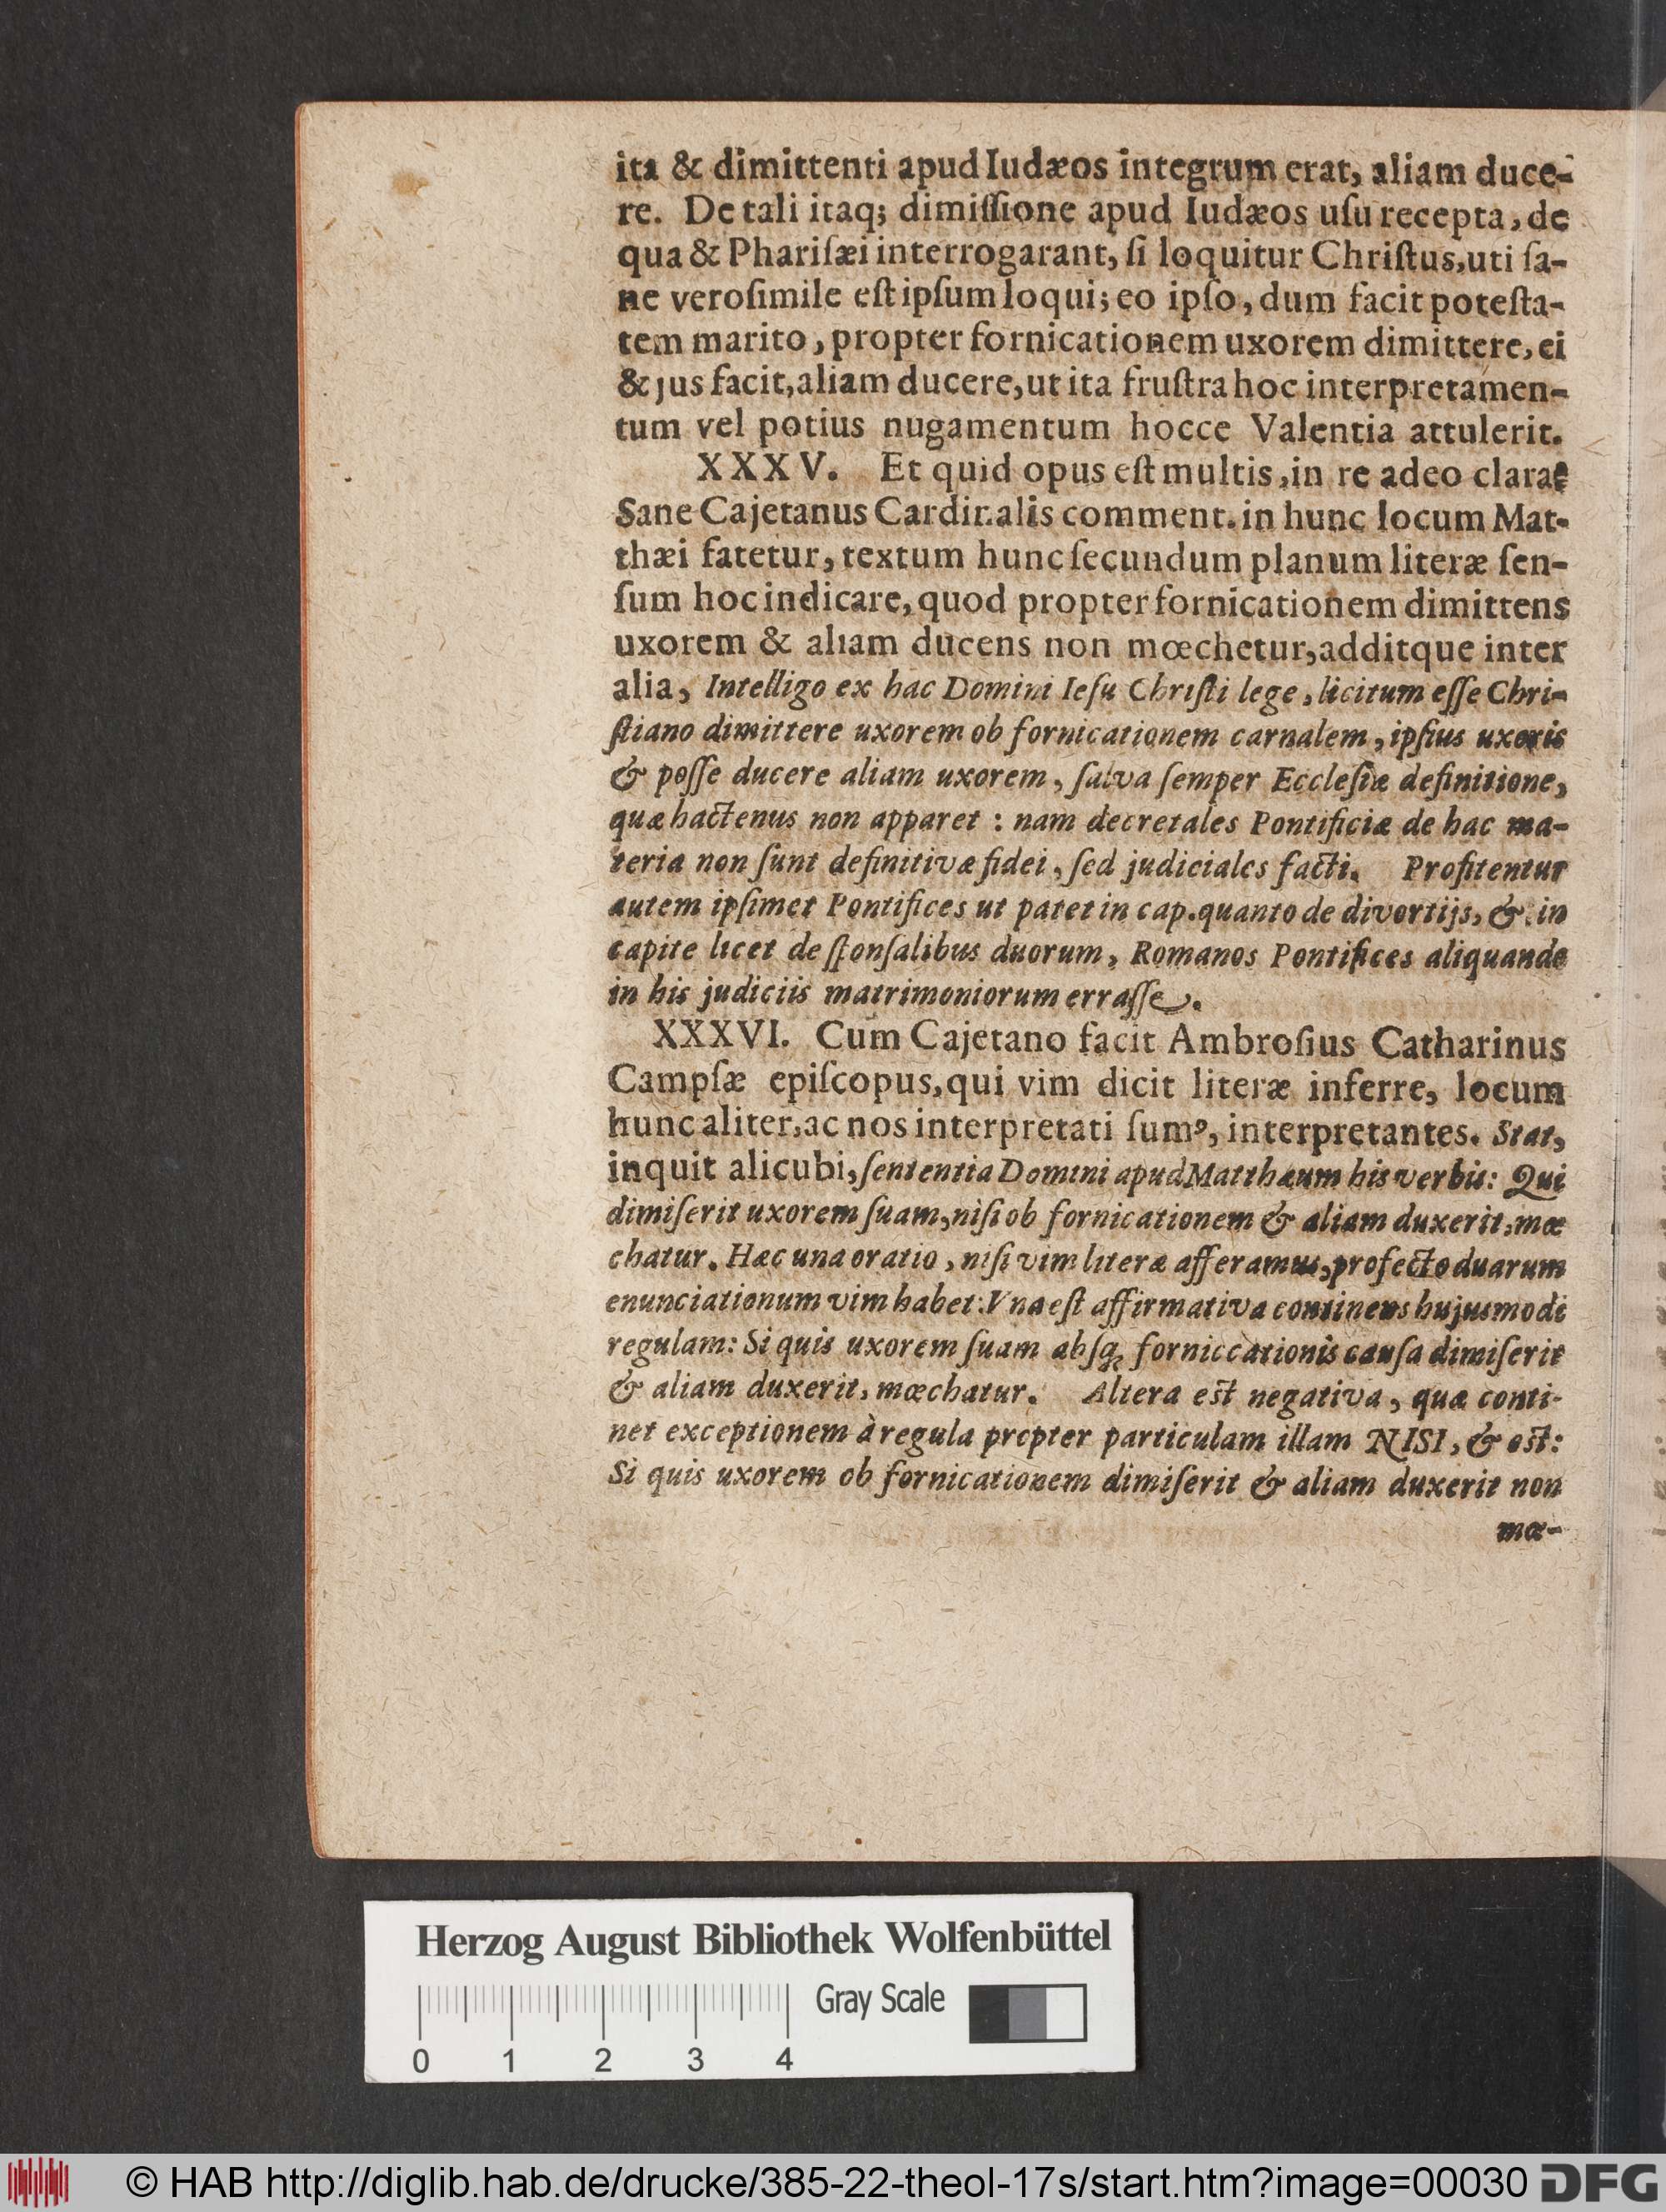 ita & dimittenti apud Iudæos integrum erat, aliam duce-
re. De tali itaq; dimiſſione apud Iudæos uſu recepta, de
qua & Phariſæi interrogarant, ſi loquitur Chriſtus, uti ſa-
ne veroſimile eſt ipſum loqui; eo ipſo, dum facit poteſta-
tem marito, propter fornicationem uxorem dimittere, ei
& jus facit, aliam ducere, ut ita fruſtra hoc interpretamen-
tum vel potius nugamentum hocce Valentia attulerit.
XXXV. Et quid opus eſt multis, in re adeo clara?
Sane Cajetanus Cardinalis comment. in hunc locum Mat-
thæi fatetur, textum hunc ſecundum planum literæ ſen-
ſum hoc indicare, quod propter fornicationem dimittens
uxorem & aliam ducens non mœchetur, additque inter
alia, Intelligo ex hac Domini Ieſu Chriſti lege, licitum eſſe Chri-
ſtiano dimittere uxorem ob fornicationem carnalem, ipſius uxoris
& poſſe ducere aliam uxorem, ſalva ſemper Eccleſiæ definitione,
quæ hactenus non apparet : nam decretales Pontificiæ de hac ma-
teria non ſunt definitivæ fidei, ſed judiciales facti. Profitentur
autem ipſimet Pontifices ut patet in cap. quanto de divortijs, & in
capite licet de ſponſalibus duorum, Romanos Pontifices aliquando
in his judiciis matrimoniorum erraſſe.
XXXVI. Cum Cajetano facit Ambroſius Catharinus
Campſæ epiſcopus, qui vim dicit literæ inferre, locum
hunc aliter, ac nos interpretati ſumꝰ, interpretantes. Stat,
inquit alicubi, ſententia Domini apud Matthæum his verbis: Qui
dimiſerit uxorem ſuam, niſi ob fornicationem & aliam duxerit, mœ
chatur. Hæc una oratio, niſi vim literæ afferamus, profecto duarum
enunciationum vim habet: Vna eſt affirmativa continens hujusmodi
regulam: Si quis uxorem ſuam abſq; forniccationis cauſa dimiſerit
& aliam duxerit, mœchatur. Altera eſt negativa, quæ conti-
net exceptionem à regula propter particulam illam NISI, & eſt:
Si quis uxorem ob fornicationem dimiſerit & aliam duxerit non
mœ-
Herzog August Bibliothek Wolfenbüttel
Gray Scale
0 1 2 3 4
© HAB http://diglib.hab.de/drucke/385-22-theol-17s/start.htm?image=00030 DFG